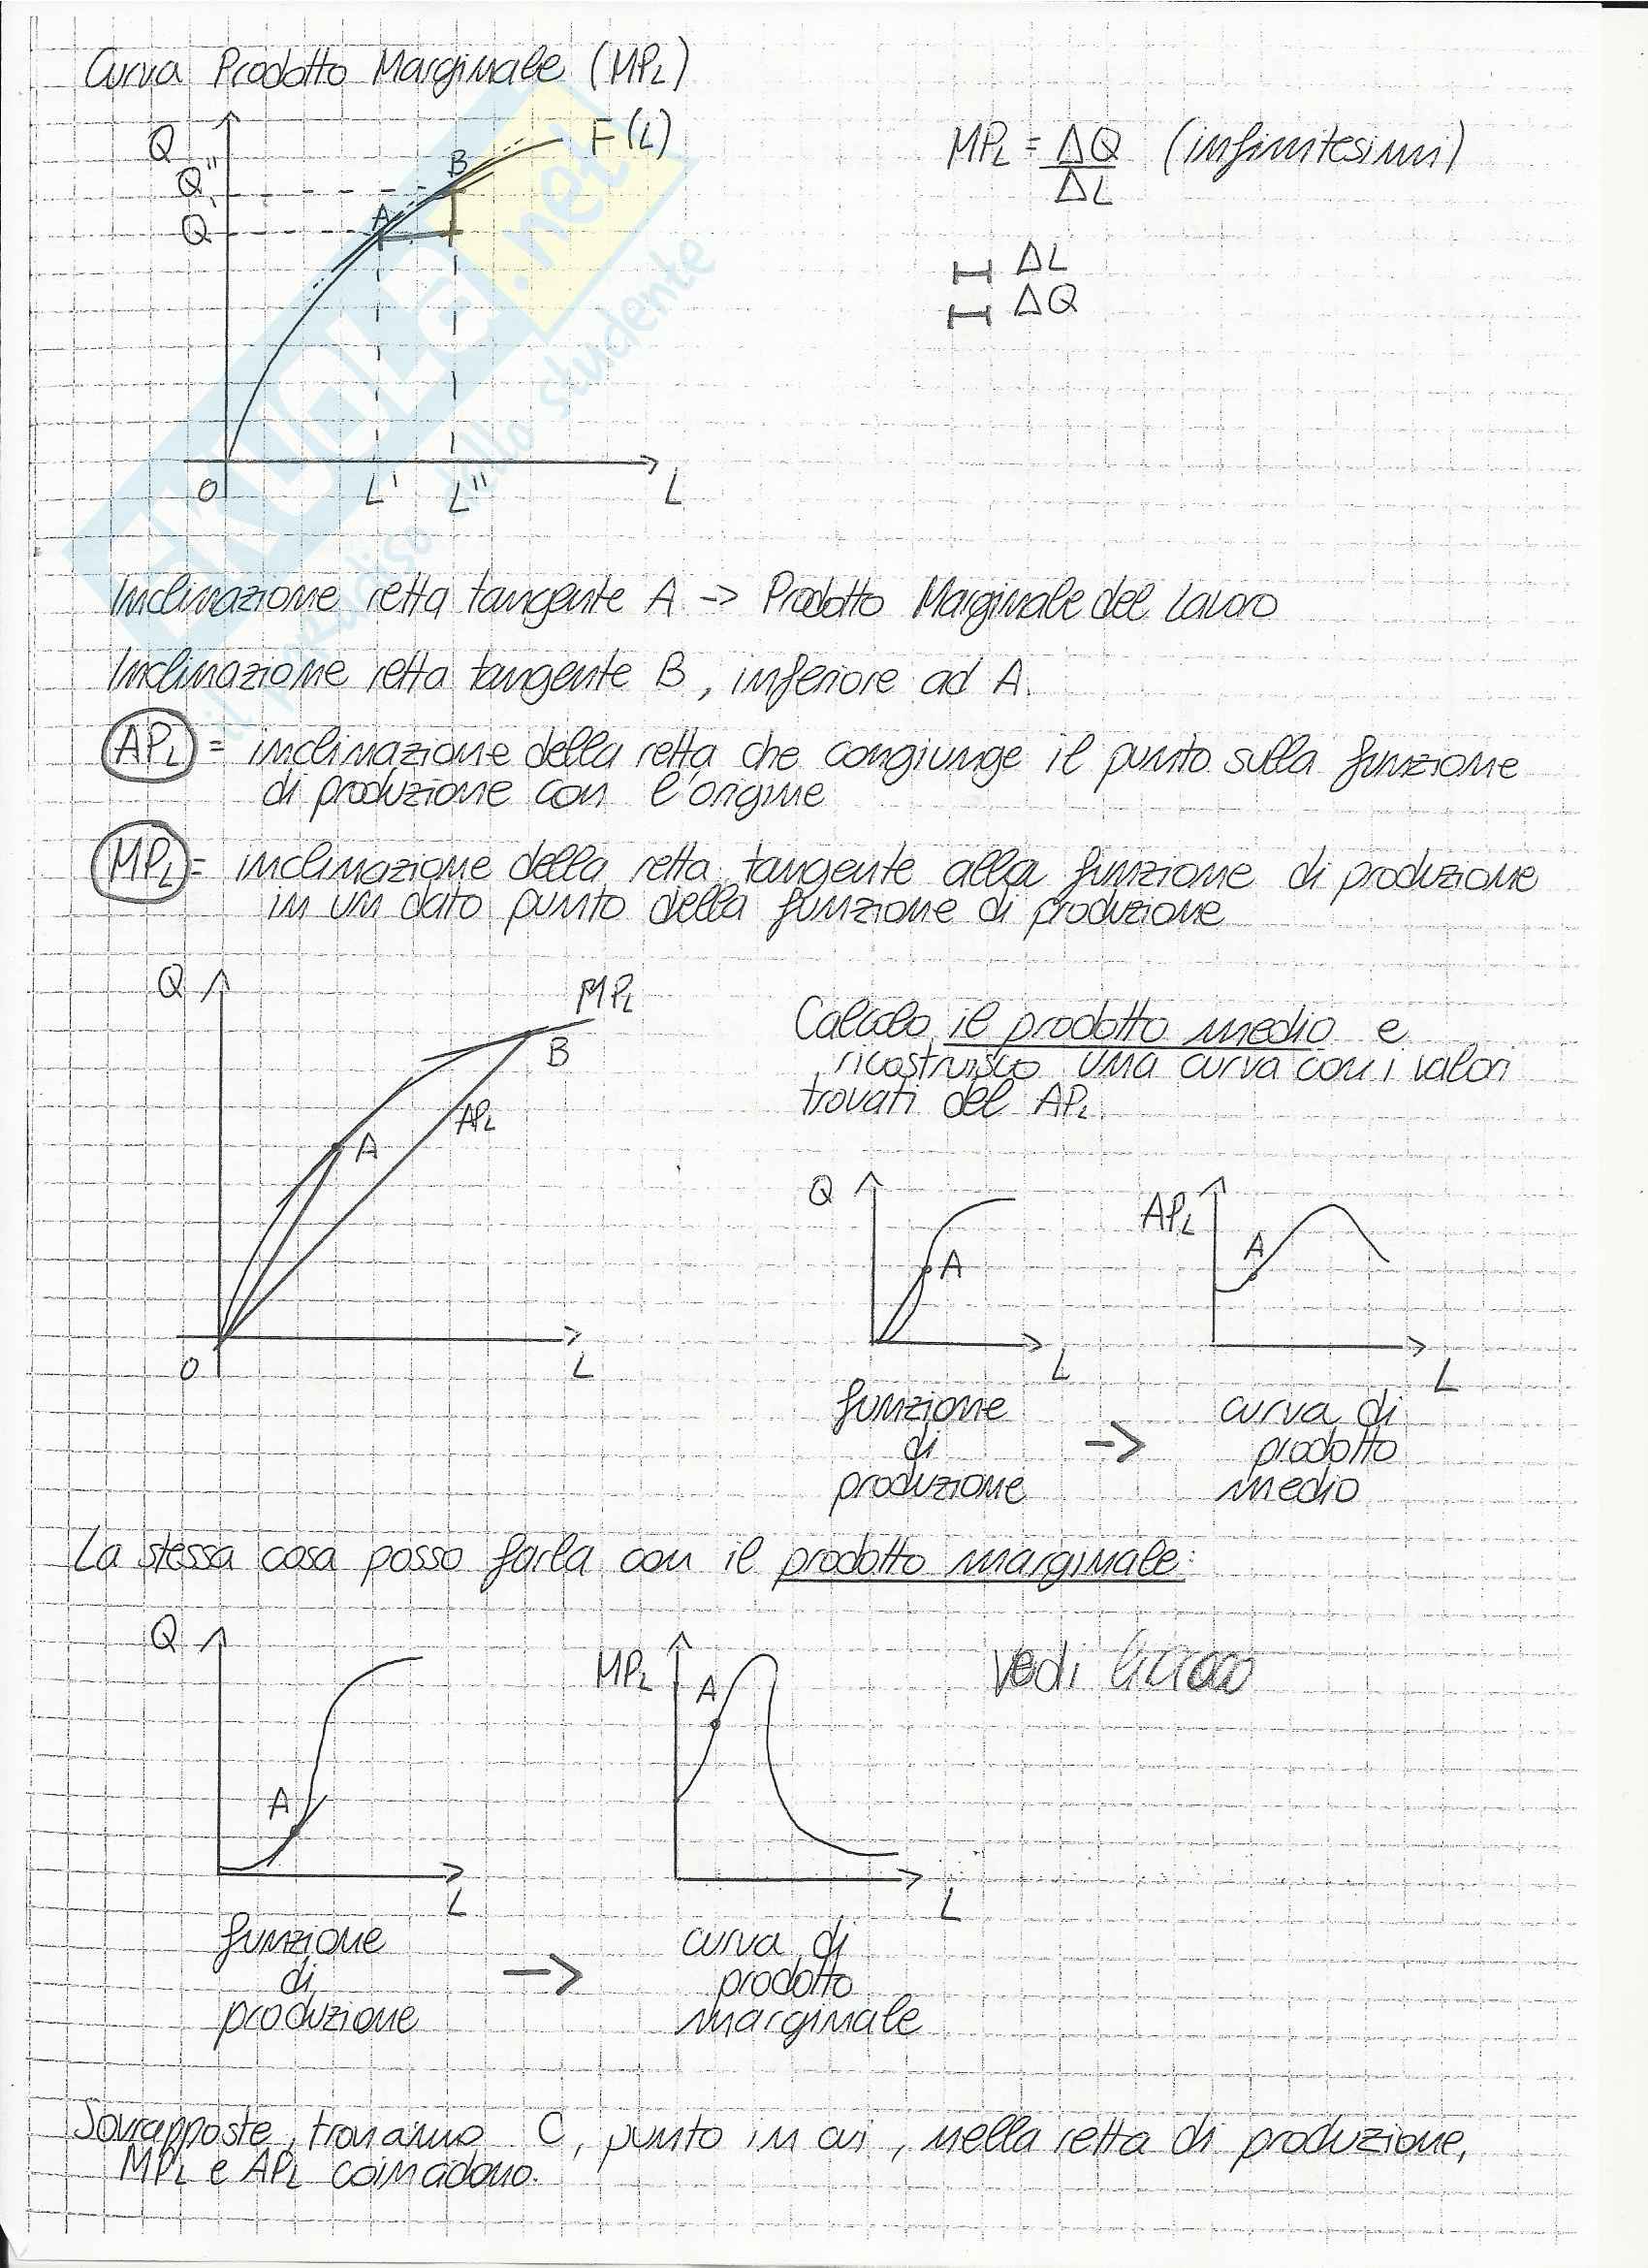 Curva Prodotto Marginale (MPL)
Q
F(L)
MPL = ΔQ (infinitesimi)
ΔL
Q''
B
A
Q'
ΔL
ΔQ
O
L'
L''
L
Inclinazione retta tangente A -> Prodotto Marginale del Lavoro
Inclinazione retta tangente B, inferiore ad A.
APL = inclinazione della retta che congiunge il punto sulla funzione
di produzione con l'origine
MPL = inclinazione della retta tangente alla funzione di produzione
in un dato punto della funzione di produzione
Q
MPL
B
APL
A
O
L
Calcolo il prodotto medio e
ricostruisco una curva con i valori
trovati del APL.
Q
A
L
APL
A
L
funzione
di
produzione
->
curva di
prodotto
medio
La stessa cosa posso farla con il prodotto marginale:
Q
A
L
MPL
A
L
Vedi
funzione
di
produzione
->
curva di
prodotto
marginale
Sovrapposte, troviamo C, punto in cui, nella retta di produzione,
MPL e APL coincidono.
.net
il paradiso dello studente